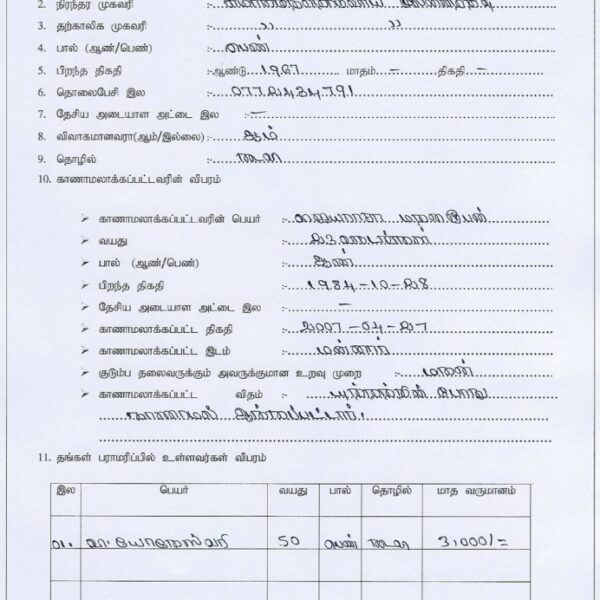 2. நிரந்தர முகவரி :-
3. தற்காலிக முகவரி :- ,, ,,
4. பால் (ஆண்/பெண்) :- பெண்
5. பிறந்த திகதி :-ஆண்டு 1967 மாதம் – திகதி –
6. தொலைபேசி இல :- 0772434791
7. தேசிய அடையாள அட்டை இல :- –
8. விவாகமானவரா(ஆம்/இல்லை):- ஆம்
9. தொழில் :-
10. காணாமலாக்கப்பட்டவரின் விபரம்
➢ காணாமலாக்கப்பட்டவரின் பெயர் :-
➢ வயது :- 23
➢ பால் (ஆண்/பெண்) :- ஆண்
➢ பிறந்த திகதி :- 1984-10-28
➢ தேசிய அடையாள அட்டை இல :- –
➢ காணாமலாக்கப்பட்ட திகதி :- 2007-04-27
➢ காணாமலாக்கப்பட்ட இடம் :- மன்னார்
➢ குடும்ப தலைவருக்கும் அவருக்குமான உறவு முறை :- மகன்
➢ காணாமலாக்கப்பட்ட விதம் :- போது
காணாமல்
11. தங்கள் பராமரிப்பில் உள்ளவர்கள் விபரம்
இல பெயர் வயது பால் தொழில் மாத வருமானம்
01. 50 பெண் 3,000/=